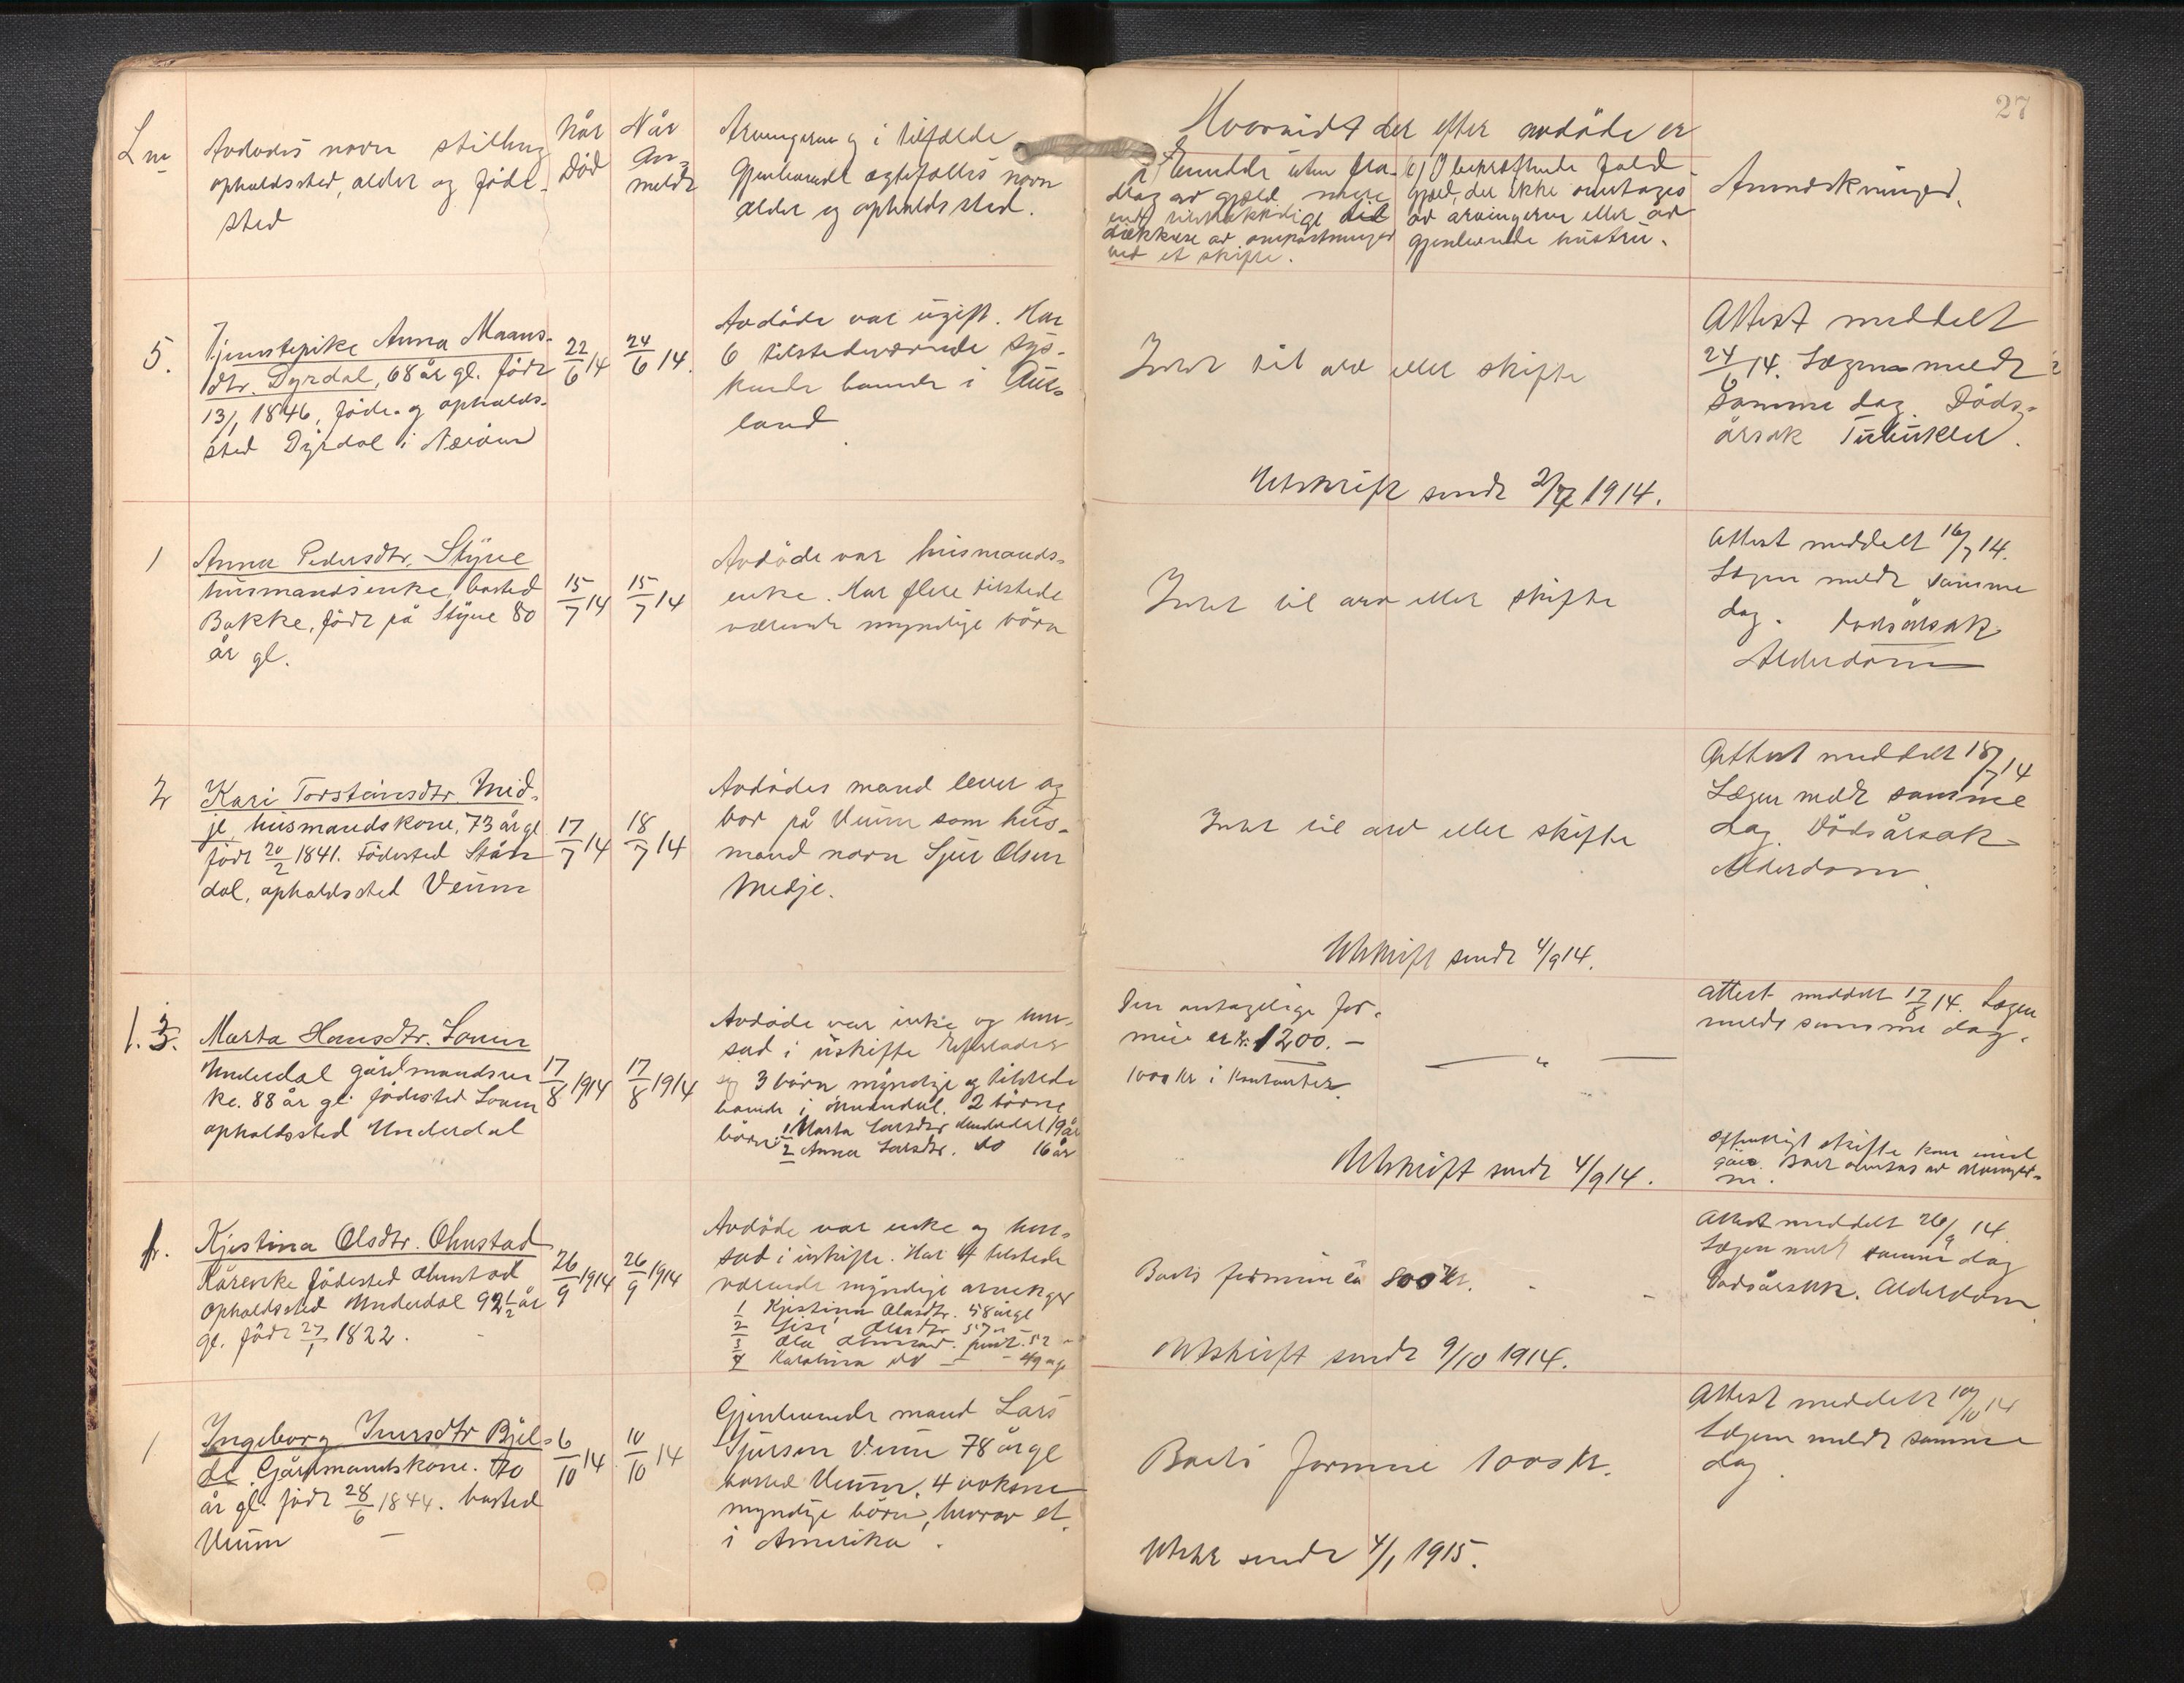 27
Lnr
Avdødes navn stilling
opholdssted, alder og føde-
sted
Når
død
Når
an-
meldt
Arvingerne og i tilfælde
gjenlevende ægtefælles navn
alder og opholdssted.
Hvorvidt der efter avdøde er
a) Eiendele uten fra-
drag av gjæld mere
end tilstrækkelige til
dækkelse av omkostninger
ved et skifte.
b) I bekræftende fald
gjæld, der ikke overtages
av arvingerne eller av
gjenlevende hustru.
Anmerkninger.
5.
Tjenestepike Anna Maans-
dtr. Dyrdal, 68 år gl. født
13/1 1846, føde- og opholds-
sted Dyrdal i Nærøen
22/6 14
24/6 14.
Avdøde var ugift. Har
6 tilstedeværende søs-
kende boende i Aur-
land
Intet til arv eller skifte
Attest meddelt
24/6 14. Lægen meldt
samme dag. Døds-
årsak Tuberkler.
Utskrift sendt 2/7 1914.
1
Anna Pedersdtr. Styve
husmandsenke, bosted
Bakke, født på Styve 80
år gl.
15/7 14
15/7 14
Avdøde var husmands-
enke. Har flere tilstede
værende myndige børn
Intet til arv eller skifte
Attest meddelt 16/7 14.
Lægen meldt samme
dag. Dødsårsak
Alderdom
2
Kari Torsteinsdtr. Mid-
je, husmandskone, 73 år gl
født 20/2 1841. Fødested
dal, opholdssted Veum
17/7 14
18/7 14
Avdødes mand lever og
bor på Veum som hus-
mand navn Sjur Olsen
Medje.
Intet til arv eller skifte
Attest meddelt 18/7 14
Lægen meldt samme
dag. Dødsårsak
Alderdom.
Utskrift sendt 4/9 14.
1. 3.
Marta Hansdtr. Loven
Underdal gårdmandsen-
ke. 88 år gl. fødested Loven
opholdssted Underdal
17/8 1914
17/8 1914
Avdøde var enke og hen-
sad i uskifte Efterlader
sig 3 børn myndige og tilstede
boende i Underdal. 2 børne
børn: 1 Marta Larsdtr. Underdal 19 år
2 Anna Larsdtr. do 16 år
Den antagelige for-
mue er kr. 1200. —
1000 kr i kontanter.
— " —
Attest meddelt 17/8 14. Lægen
meldt samme dag.
Offentligt skifte kan
Utskrift sendt 4/9 14.
1.
Kjestina Olsdtr. Ohnstad
Kårenke fødested Ohnstad
opholdssted Underdal 92 1/2 år
gl. født 27/1 1822.
26/9 1914
26/9 1914
Avdøde var enke og hen-
sad i uskifte. Har 4 tilstede
værende myndige arvinger
1 Kjestina Olasdtr. 58 år gl
2 Olasdtr 57 "
3 Ola Ohnstad. 52 "
4 Karolina do — 49 "
Boets formue ca 800 kr.
Attest meddelt 26/9 14.
Lægen meldt samme dag
Dødsårsak. Alderdom.
Utskrift sendt 9/10 1914.
1
Ingeborg Iversdtr Bjel-
de Gårdmandskone. 70
år gl. født 28/6 1844. bosted
Veum —
6/10 14
10/10 14
Gjenlevende mand Lars
Sjursen Veum 78 år gl
bosted Veum. 4 voksne
myndige børn, hvorav et
i Amerika.
Boets formue 1000 kr.
Attest meddelt 10/10 14
Lægen meldt samme
dag.
Utskr sendt 4/1 1915.